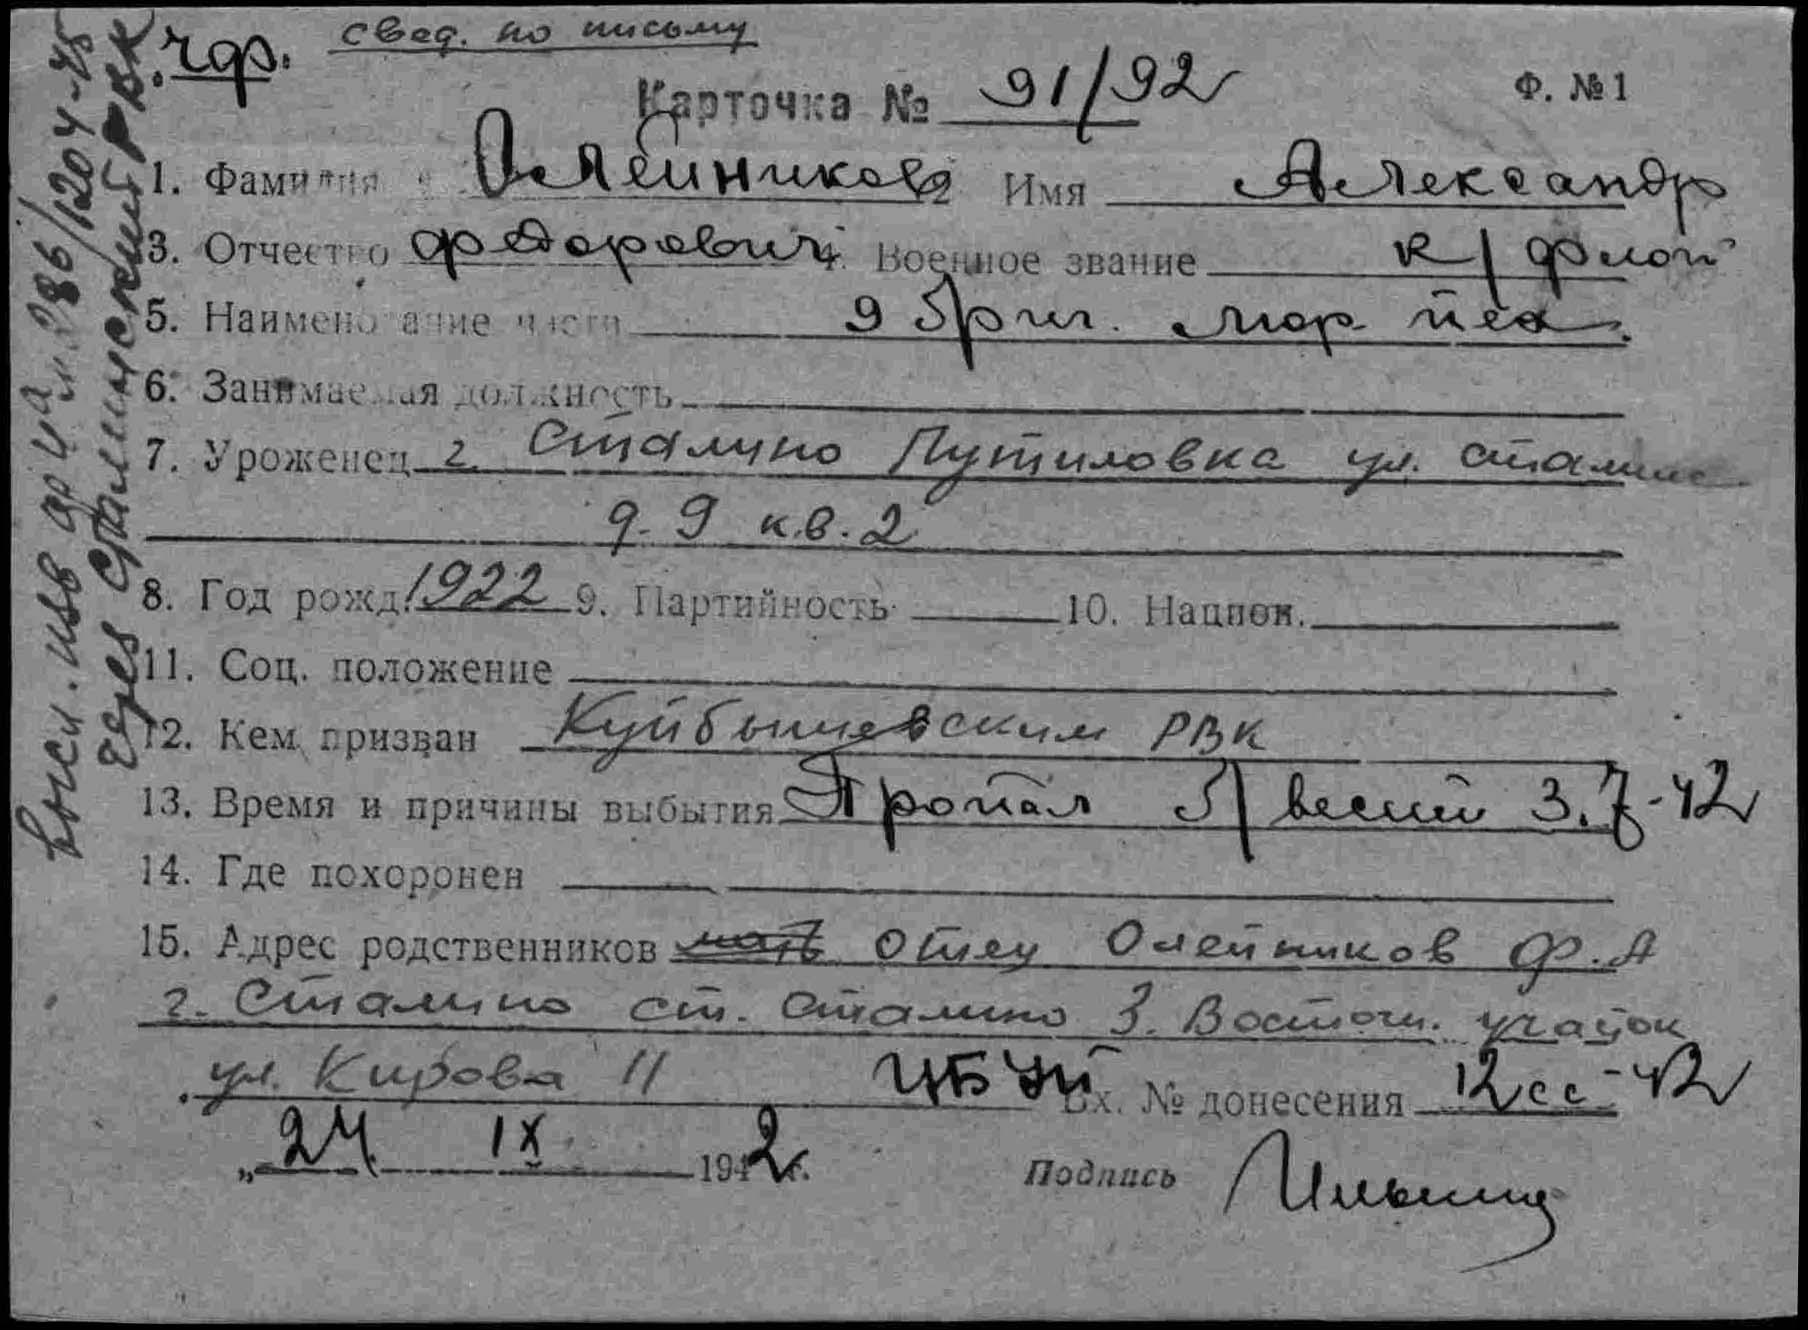 чф. свед. по письму
Карточка № 91/92 Ф. №1
1. Фамилия Олейников 2 Имя Александр
3. Отчество Федорович 4. Военное звание к/флот
5. Наименование части 9 бриг. мор. пех.
6. Занимаемая должность
7. Уроженец г. Сталино Путиловка ул. Сталина
д. 9 кв. 2
8. Год рожд. 1922 9. Партийность 10. Национ.
11. Соц. положение
12. Кем призван Куйбышевским РВК
13. Время и причины выбытия Пропал б/вести 3.7-42
14. Где похоронен
15. Адрес родственников мать отец Олейников Ф.А
г. Сталино ст. Сталино 3. Восточн. участок
ул. Кирова 11 Вх. № донесения 12сс-42
„24 IX 1942г. Подпись Ильин
высл. изв ф 286/1204-45
через Сталинский РВК